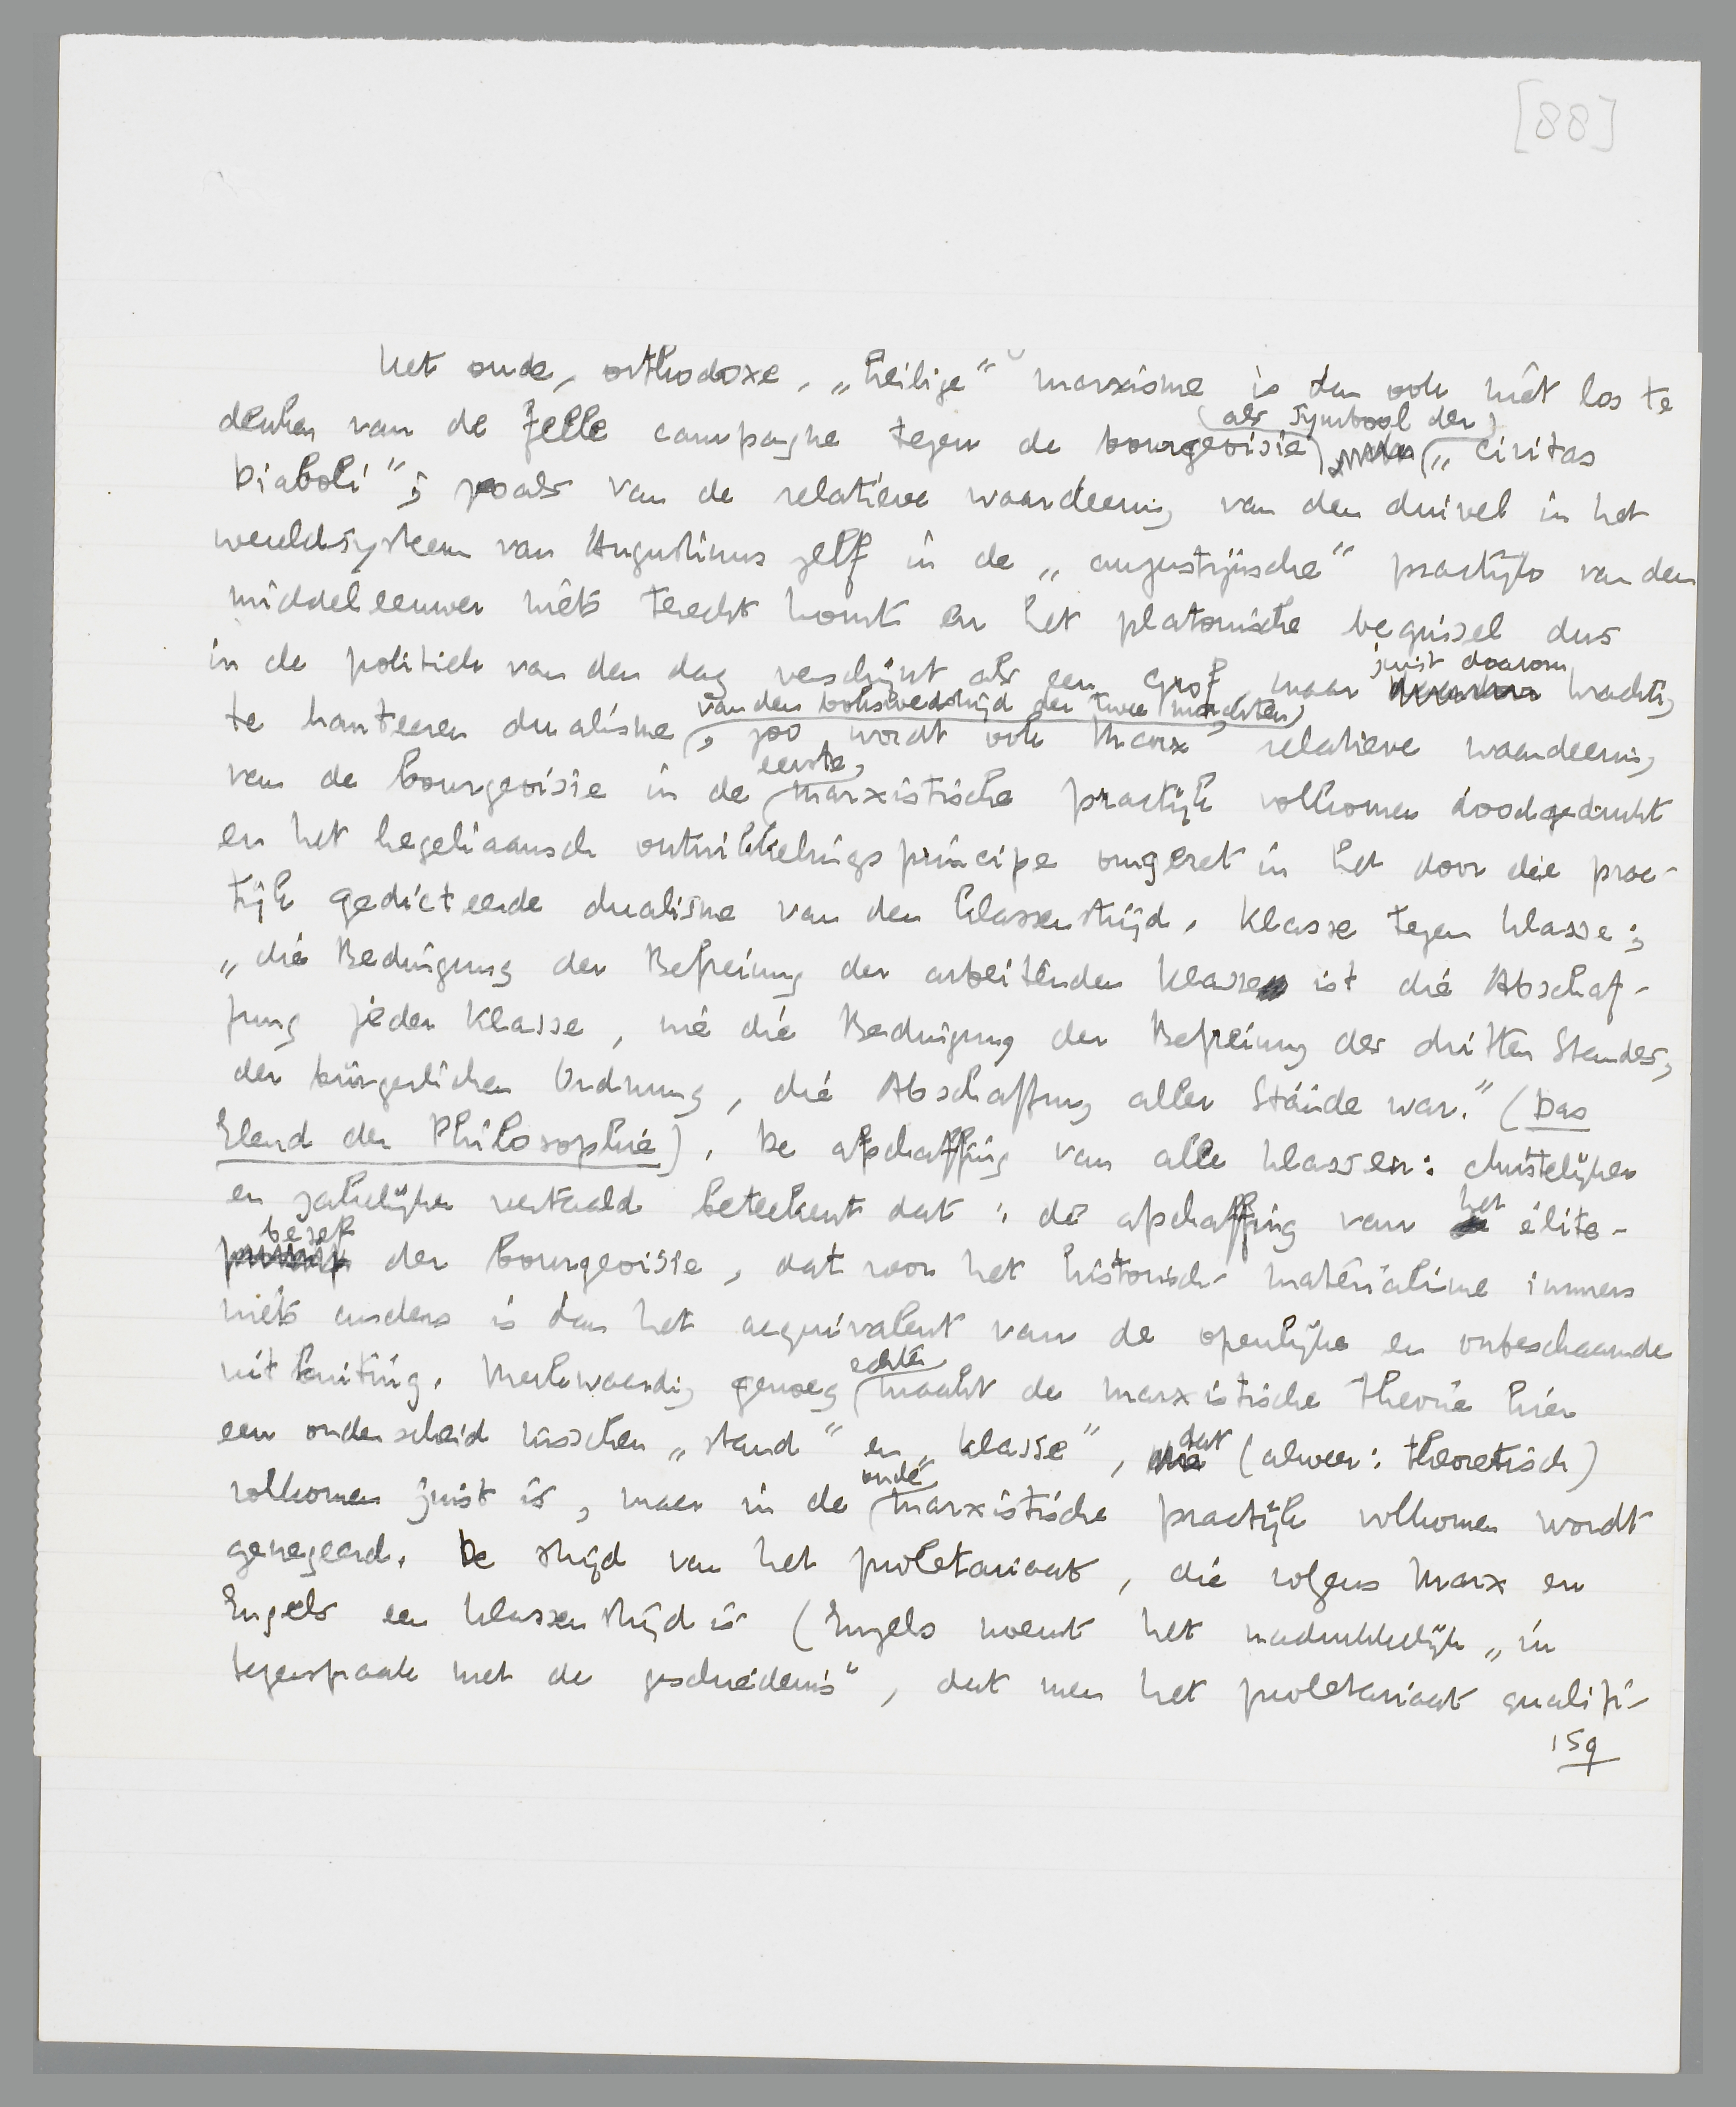 [88]
Het oude, orthodoxe, „heilige" marxisme is dan ook niet los te
denken van de felle campagne tegen de bourgeoisie (als symbool der) „civitas
Diaboli"; zoals van de relatieve waardeering van den duivel in het
wereldsysteem van Augustinus zelf in de „augustijnsche" practijk van den
middeleeuwer niets terecht komt en het platonische beginsel dus
in de politiek van den dag verschijnt als een grof, maar juist daarom krachtig
te hanteeren dualisme van den bokswedstrijd der twee machten, zoo wordt ook Marx' relatieve waardeering
van de bourgeoisie in de eerste, marxistische practijk volkomen doodgedrukt
en het hegeliaansch ontwikkelingsprincipe omgezet in het door die prac-
tijk gedicteerde dualisme van den klassenstrijd. Klasse tegen klasse;
„die Bedingung der Befreiung der arbeitenden Klasse ist die Abschaf-
fung jeder Klasse, wie die Bedingung der Befreiung des dritten Standes,
der bürgerlichen Ordnung, die Abschaffung aller Stände war." (Das
Elend der Philosophie). De afschaffing van alle klassen: christelijker
en zakelijker vertaald beteekent dat: de afschaffing van het élite-
besef der bourgeoisie, dat voor het historisch-materialisme immers
niets anders is dan het aequivalent van de openlijke en onbeschaamde
uitbuiting. Merkwaardig genoeg echter maakt de marxistische theorie hier
een onderscheid tusschen „stand" en „klasse", dat (alweer: theoretisch)
volkomen juist is, maar in de oude marxistische practijk volkomen wordt
genegeerd. De strijd van het proletariaat, die volgens Marx en
Engels een klassenstrijd is (Engels noemt het nadrukkelijk „in
tegenspraak met de geschiedenis", dat men het proletariaat qualifi-
159